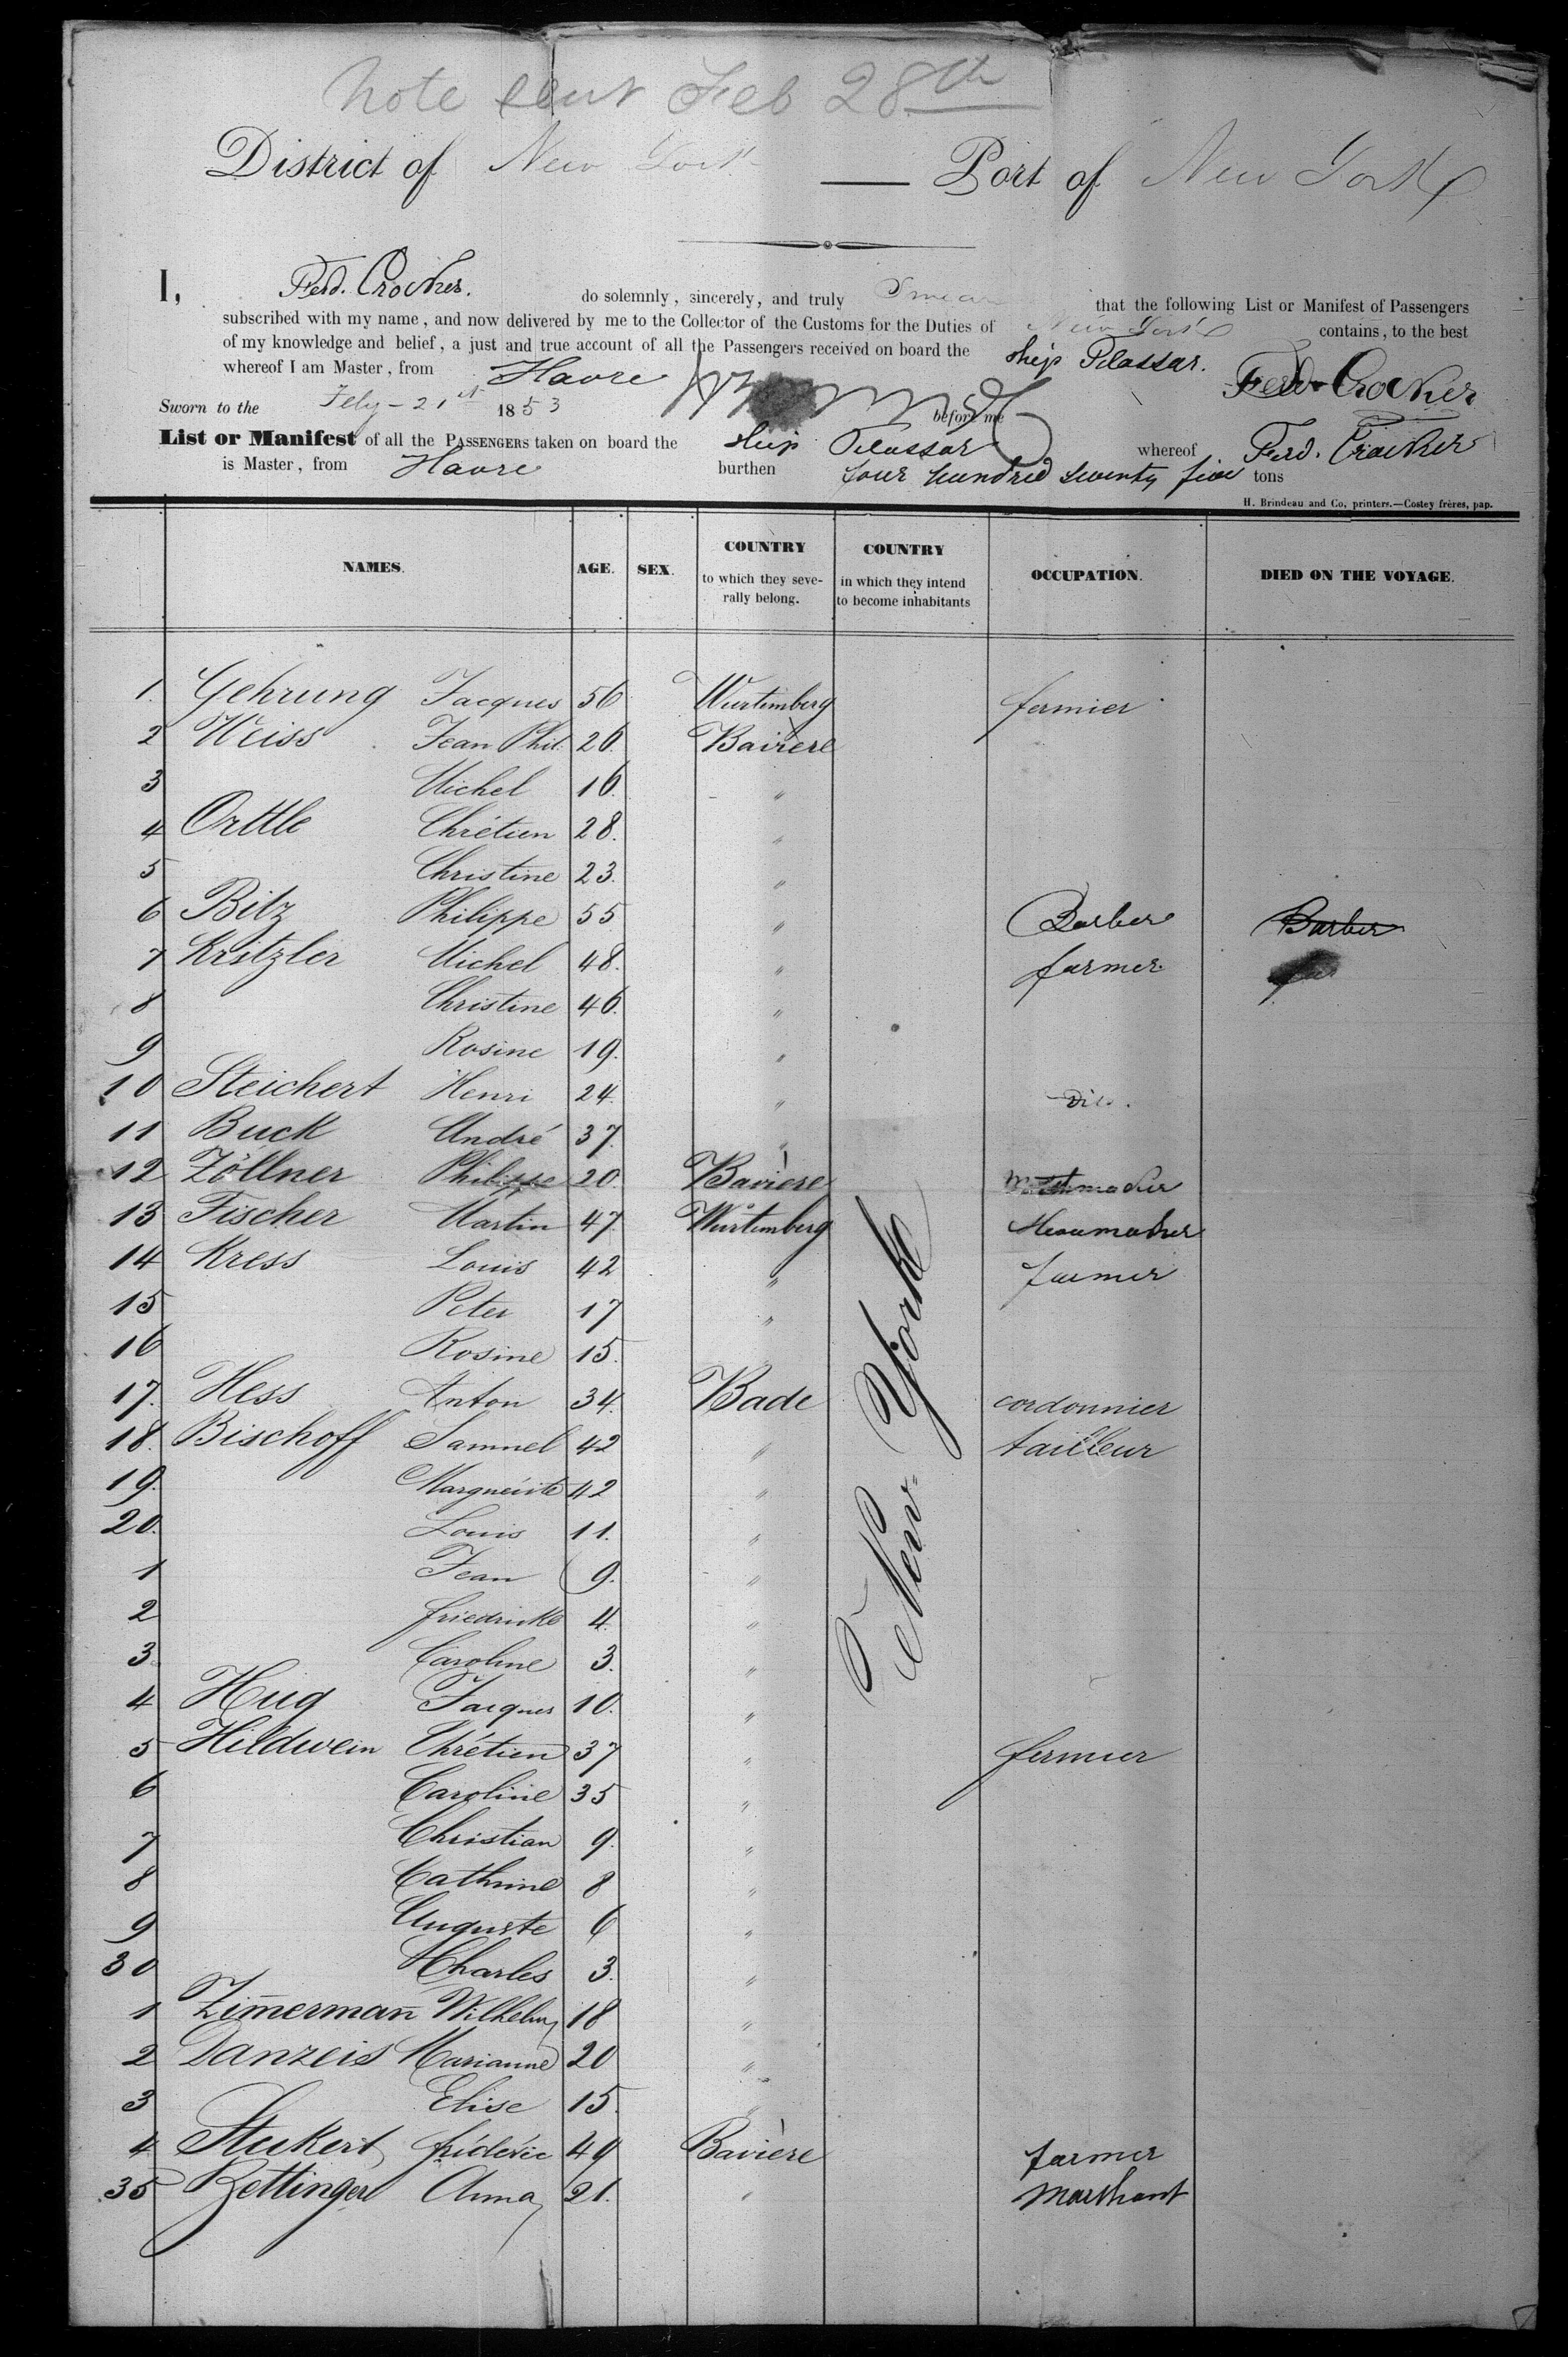 Note sent Feb 28th
District of New York — Port of New York
I, Ferd. Crocker. do solemnly, sincerely, and truly Swear that the following List or Manifest of Passengers
subscribed with my name, and now delivered by me to the Collector of the Customs for the Duties of New York contains, to the best
of my knowledge and belief, a just and true account of all the Passengers received on board the Ship Telassar.
whereof I am Master, from Havre Ferd Crocker
Sworn to the Feby - 21st 1853 before me
List or Manifest of all the PASSENGERS taken on board the Ship Telassar whereof Ferd. Crocker
is Master, from Havre burthen four hundred seventy five tons
H. Brindeau and Co, printers.—Costey frères, pap.
NAMES. AGE. SEX. COUNTRY to which they seve- rally belong. COUNTRY in which they intend to become inhabitants OCCUPATION. DIED ON THE VOYAGE.
1. Gehrung Jacques 56 Wurtemberg fermier
2 Weiss Jean Phil. 26 Bavière
3 Michel 16 "
4 Orttle Chrétien 28. "
5 Christine 23. "
6 Bitz Philippe 55 " Barber Barber
7 Kritzler Michel 48. " farmer
8 Christine 46. "
9 Rosine 19. "
10 Steichert Henri 24. " Dito.
11 Buck André 37. "
12 Zöllner Philippe 20. Bavière
13 Fischer Martin 47. Würtemberg
14 Kress Louis 42 " farmer
15 Peter 17 "
16 Rosine 15. "
17. Hess Anton 34. Bade cordonnier
18. Bischoff Samuel 42 " tailleur
19. Marguerite 42 "
20. Louis 11. "
1 Jean 9. "
2 friedricke 4. "
3. Caroline 3. "
4 Hug Jacques 10. "
5 Hildwein Chrétien 37 " fermier
6 Caroline 35 "
7 Christian 9. "
8 Cathrine 8 "
9 Auguste 6 "
30 Charles 3. "
1 Zim̄erman̄ Wilhelm 18 "
2 Danzeis Marianne 20 "
3 Elise 15. "
4 Stukert fréderic 49 Bavière farmer
35 Bettinger Anna 21. "
New-York